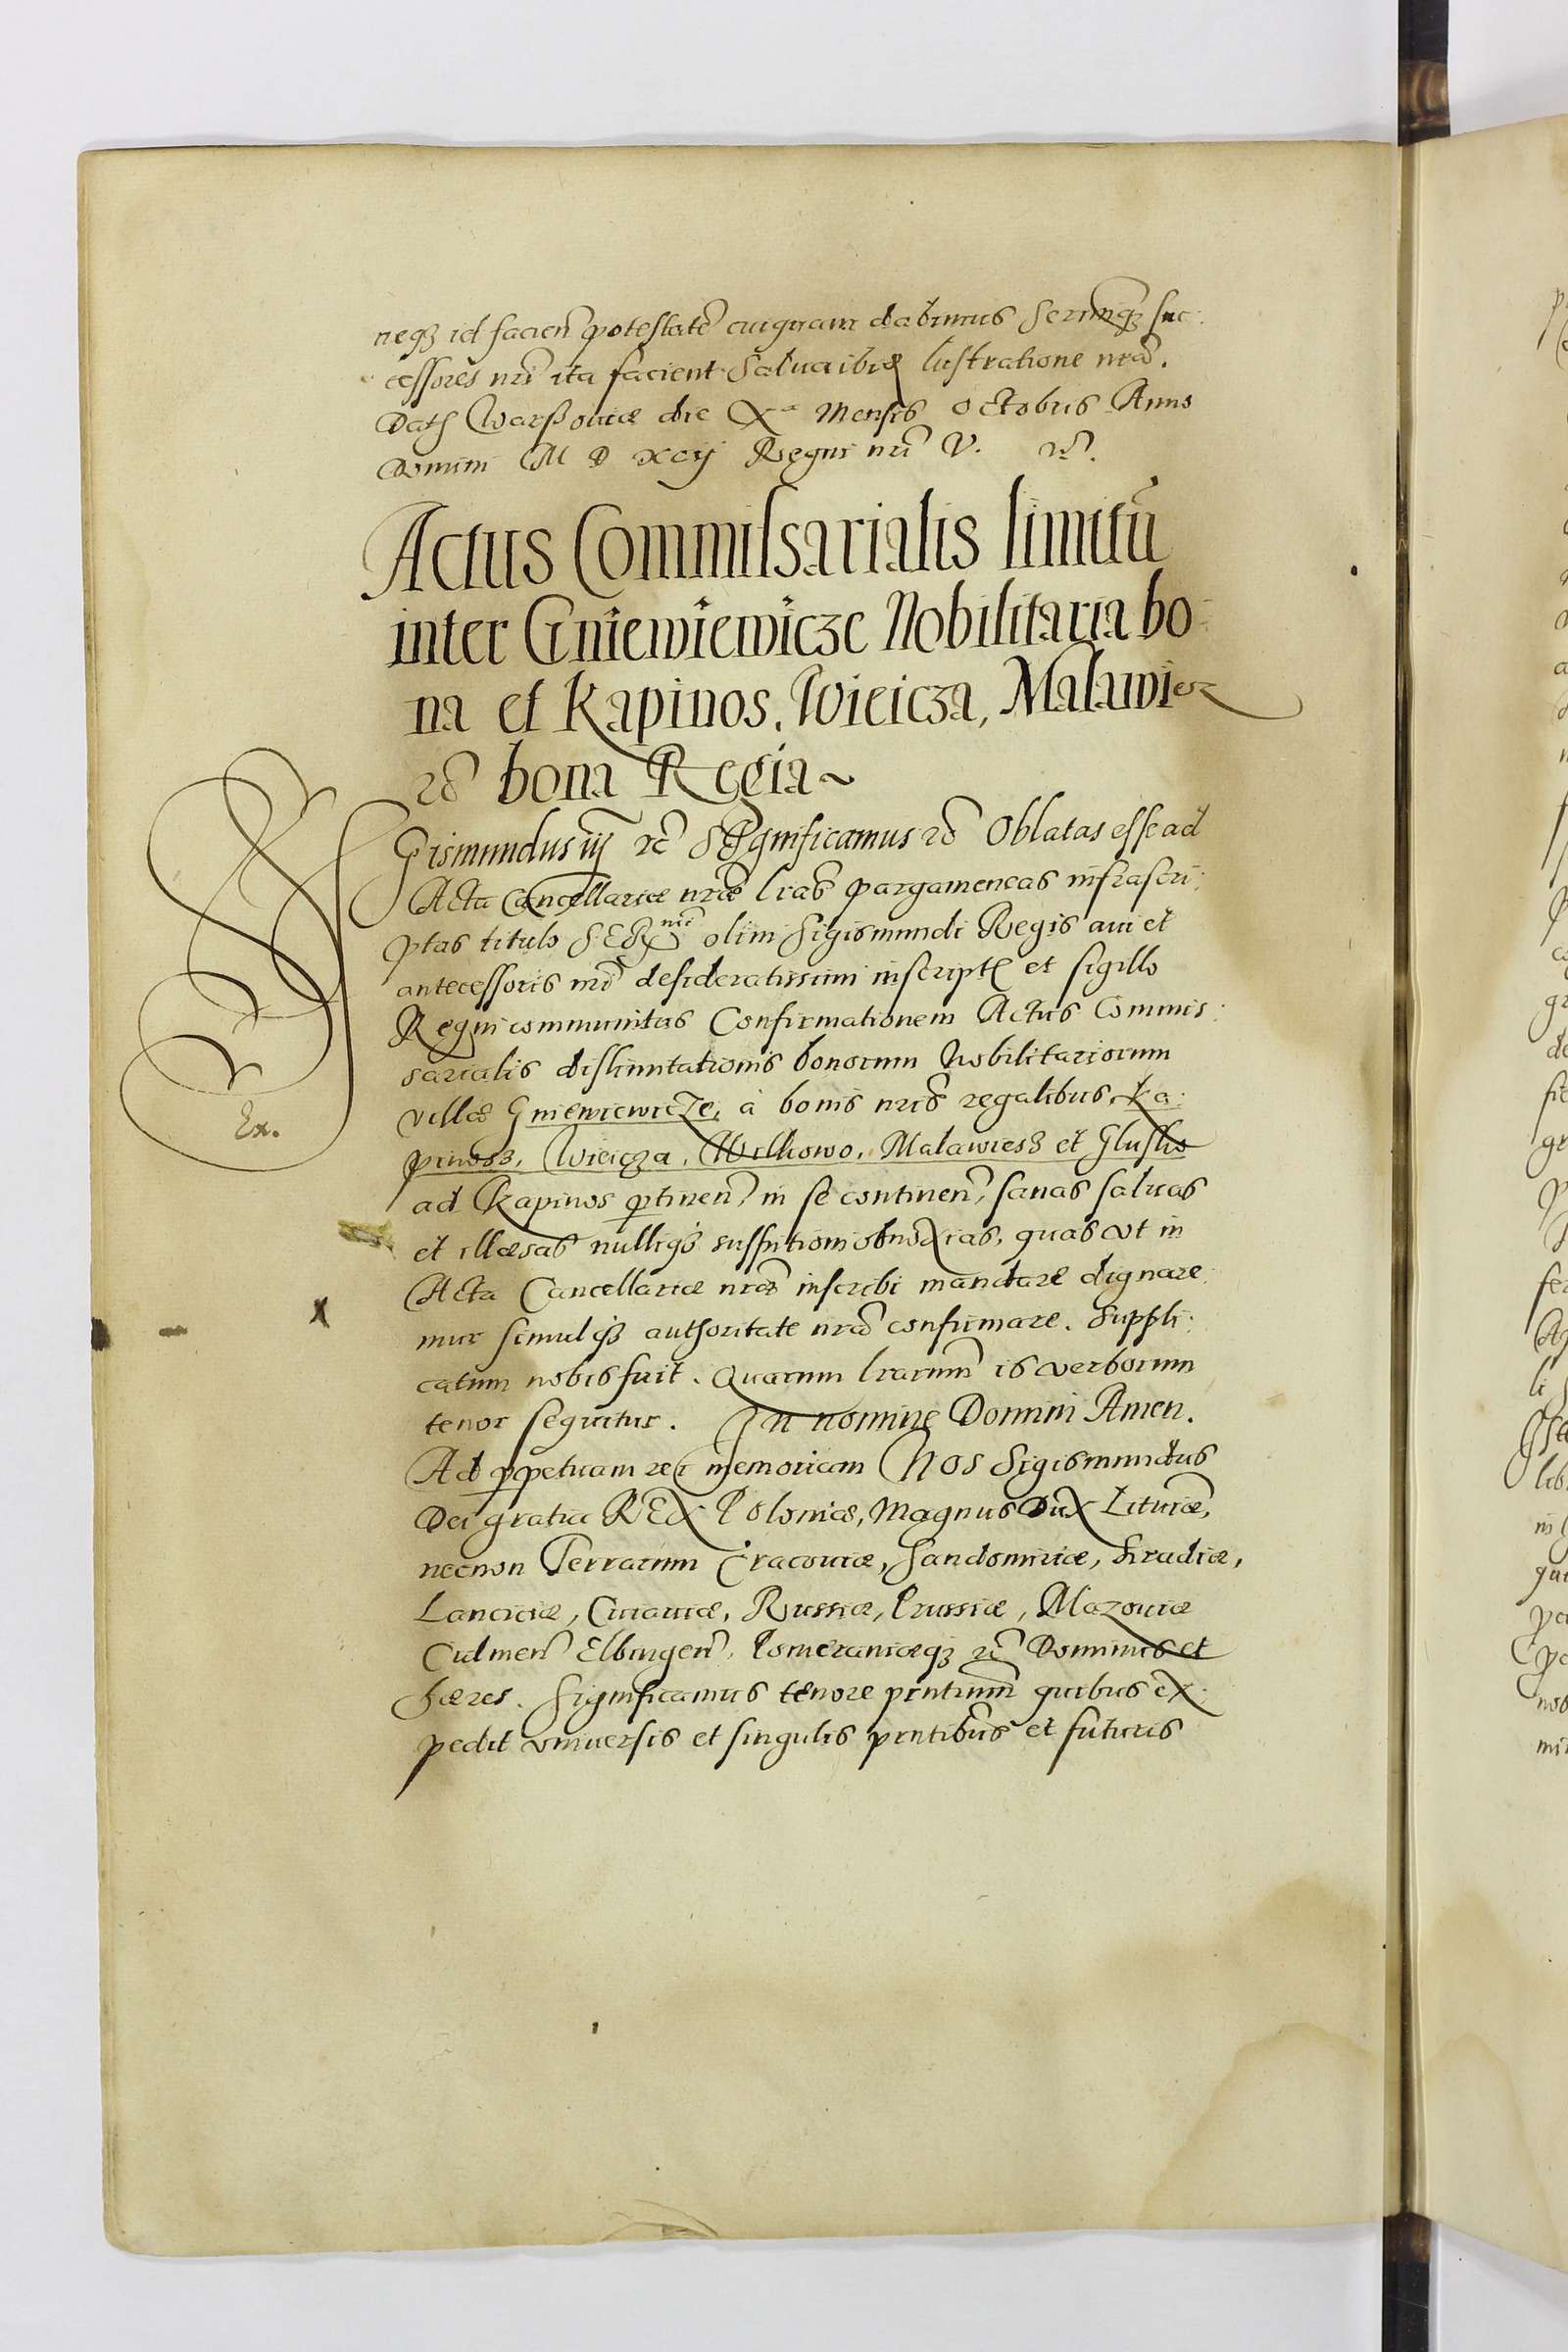 neqz id facien potestate cuiquam dabimus Sermiqz suc:
cessores nri ita facient Salva ibid lustratione nra.
Dat Warssoviæ die Xa Mensis Octobris Anno
Domini M D XCij Regni nri V. rc.
Actus Commissarialis limitu
inter Gniewiewicze Nobilitaria bo
na et Kapinos, Wieicza, Malawiesz
rc bona Regia~
Sigismundus iij rc Significamus rc Oblatas esse ad
Acta Cancellariæ nræ lras pargameneas infrascri:
ptas titulo SERmi olim Sigismundi Regis avi et
antecessoris nri desideratissimi inscript et sigillo
Regni communitas Confirmationem Actus Commis:
sarialis dislimitationis bonorum Nobilitariorum
villæ Gniewiewicze, à bonis nris regalibus, Ka:
pinosz, Wieicza, Wilkowo, Malawiesz et Glusko
ad Kapinos ptinen, in se continen, sanas salvas
et illæsas nulliqz suspitioni obnoxias, quas vt in
Acta Cancellariæ nræ inscribi mandare dignare:
mur simulqz authoritate nra confirmare. Suppli:
catum nobis fuit. Quarum lrarum is verborum
tenor sequitur. In nomine Domini Amen.
Ad ppetuam rei memoriam Nos Sigismundus
Dei gratia REX Poloniæ, Magnus Dux Lituaniæ,
necnon Terrarum Cracoviæ, Sandomiriæ, Siradiæ,
Lanciciæ, Cuiaviæ, Russiæ, Prussiæ, Mazoviæ
Culmen Elbingen, Pomeraniæqz rc Dominus et
hæres. Significamus tenore pntium quibus ex:
pedit vniversis et singulis pntibus et futuris
Ex.